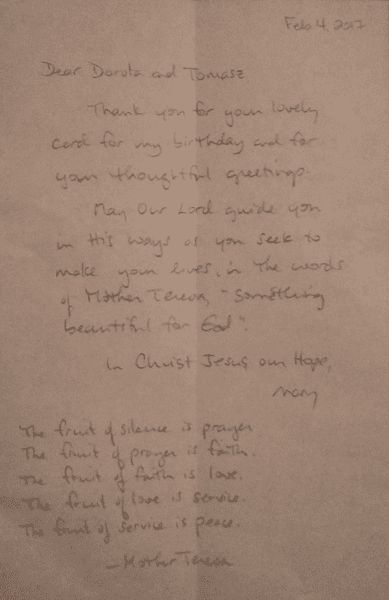 Feb 4, 2017
Dear Dorota and Tomasz,
Thank you for your lovely
card for my birthday and for
your thoughtful greetings.
May Our Lord guide you
in His ways as you seek to
make your lives, in the words
of Mother Teresa, "something
beautiful for God".
In Christ Jesus our Hope,
Mary
The fruit of silence is prayer
The fruit of prayer is faith.
The fruit of faith is love.
The fruit of love is service.
The fruit of service is peace.
- Mother Teresa